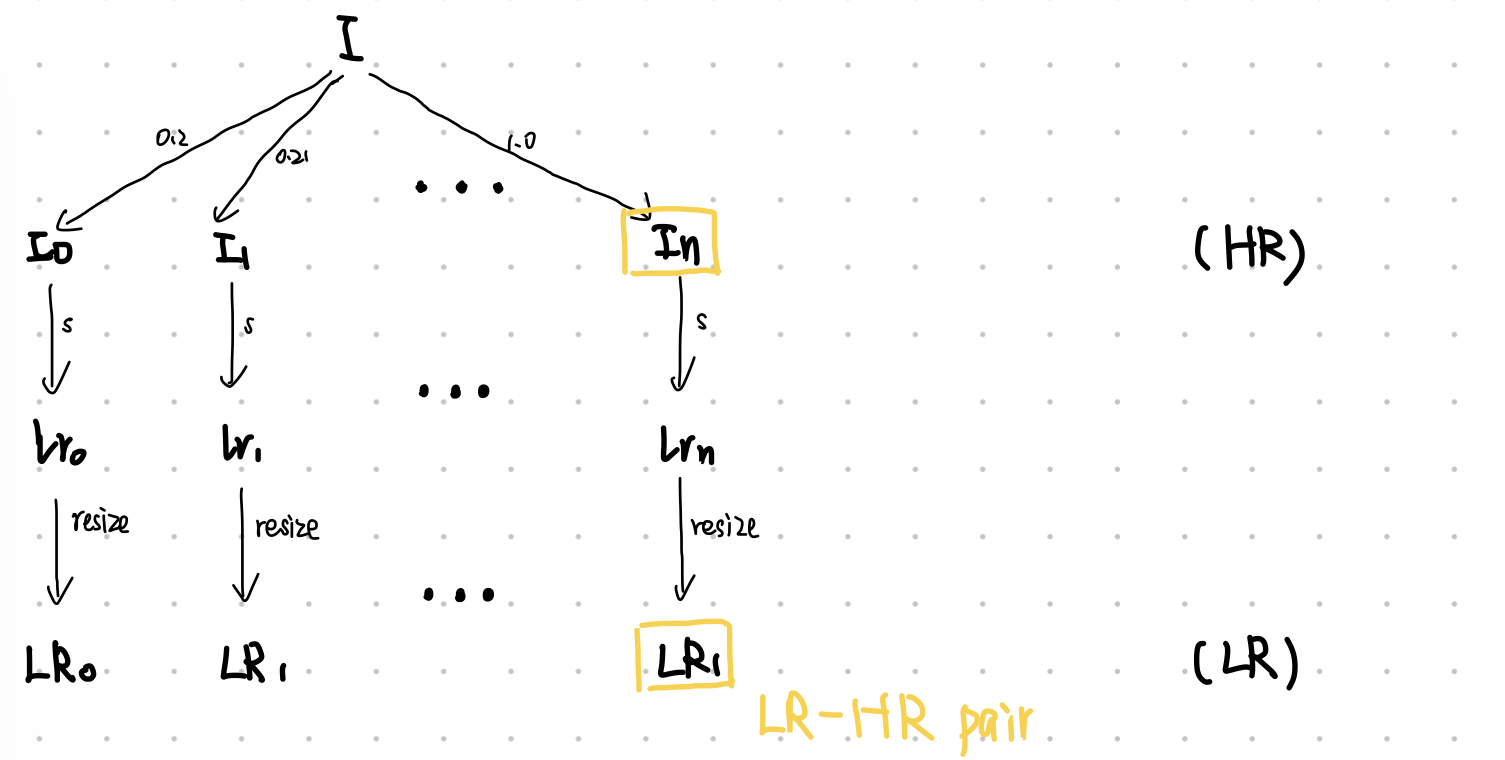 I
0.2 0.21 1.0
I0 I1 ... In (HR)
s s s
lr0 lr1 ... lrn
resize resize resize
LR0 LR1 ... LR1 (LR)
LR-HR pair